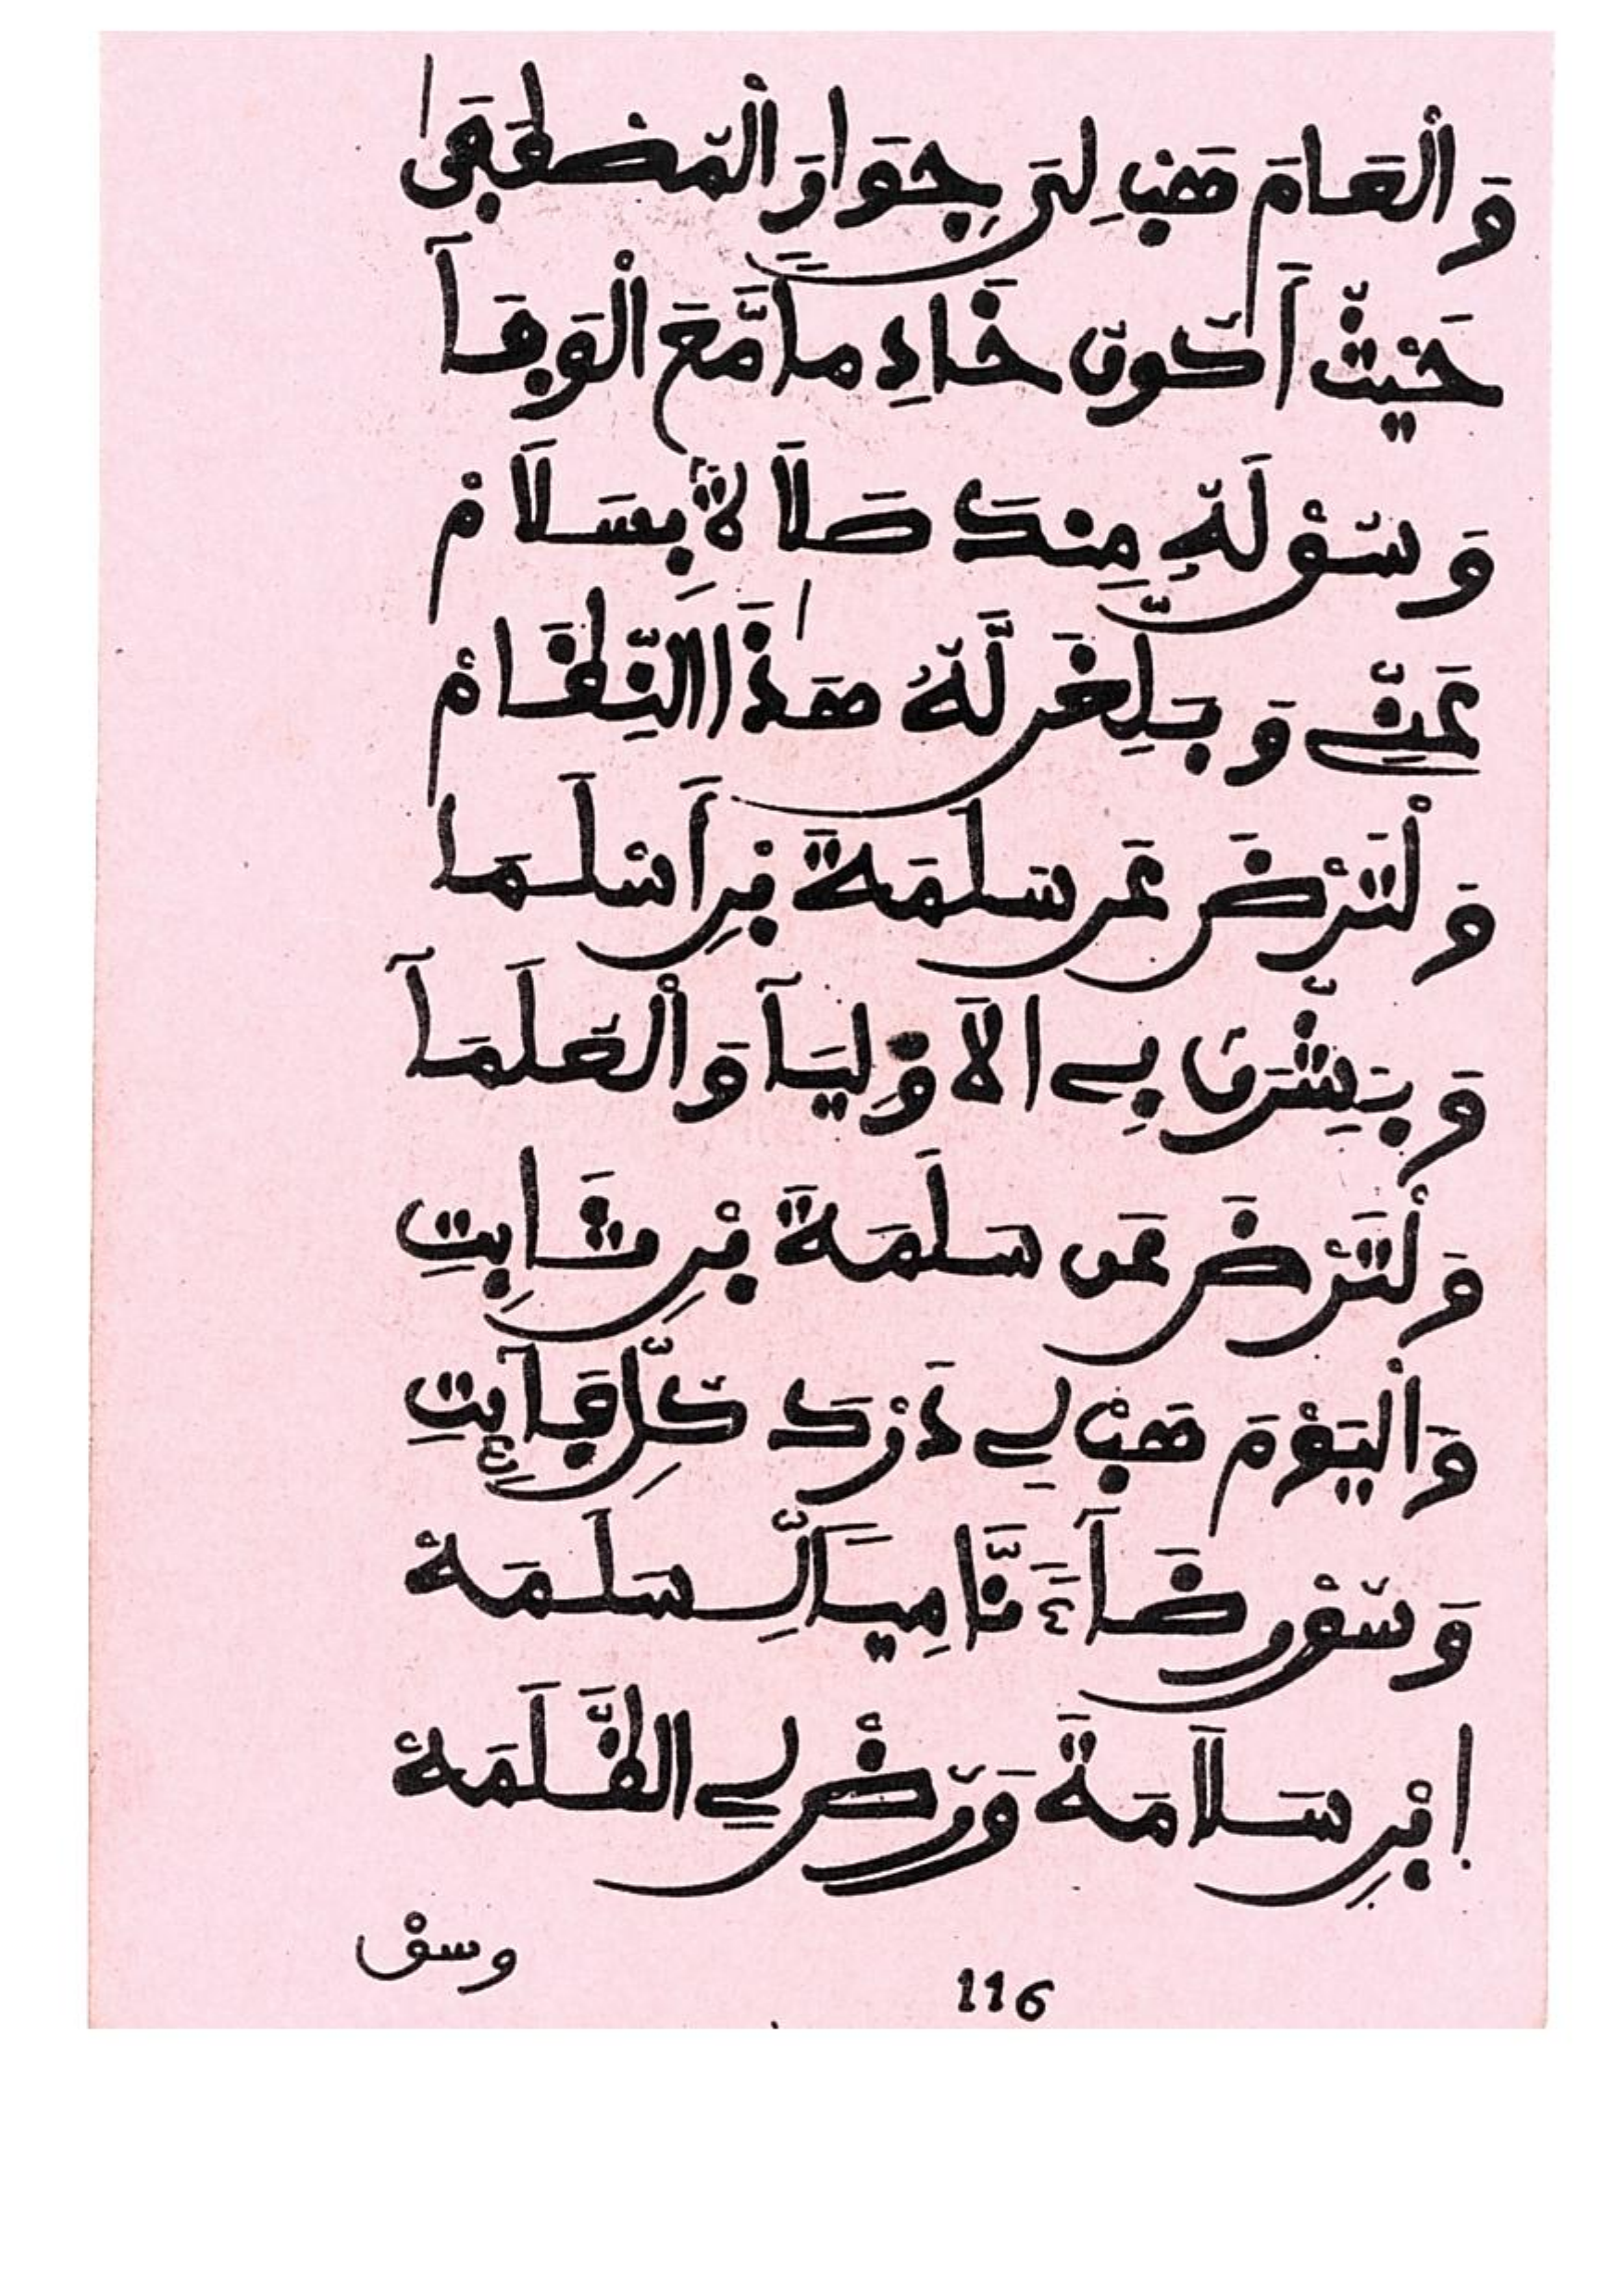 وَالْعَامَ هَبْ لِى جِوَارَ الْمُصْطَفَىٰ
حَيْثُ أَكُونُ خَادِمًا مَّعَ الْوَفَآ
وَسُقْ لَهُ مِنكَ صَلَاةً بِسَلَامْ
عَنِّے وَبَلِّغَن لَّهُ هَٰذَا النِّظَامْ
وَلْتَرْضَ عَن سَلَمَةَ بْنِ أَسْلَمَا
وَبَشِّرَن بِے الَاوْلِيَآ وَالْعُلَمَآ
وَلْتَرْضَ عَن سَلَمَةَ بْنِ ثَابِتِ
وَالْيَوْمَ هَبْ لِے دَرْكَ كُلِّ فَآئِتِ
وَسُقْ رِضَآءً نَّامِيًا لِّسَلَمَهْ
اِبْنِ سَلَامَةَ وَرَضِّ لِے الظَّلَمَهْ
وسق
116